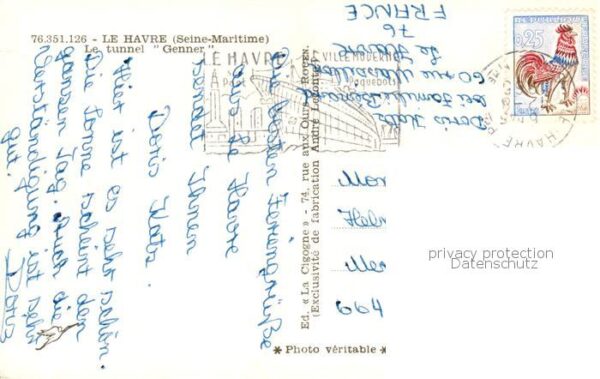 76.351.126 - LE HAVRE (Seine-Maritime)
Le tunnel "Genner"
Die besten Feriengrüße
aus Le Havre
sendet Ihnen
Doris Kats.
Hier ist es sehr schön.
Die Sonne scheint den
ganzen Tag. Auch die
Verständigung ist sehr
gut.
Doris
LE HAVRE
VILLE MODERNE
Paquebots
Ed. « La Cigogne » - 74, rue aux Ours - ROUEN.
(Exclusivité de fabrication André Leconte)
* Photo véritable *
Doris Kats
bei Familie
60 rue
Le Havre
76
FRANCE
0,25
LE HAVRE
Mon
Hel
Me
664
privacy protection
Datenschutz